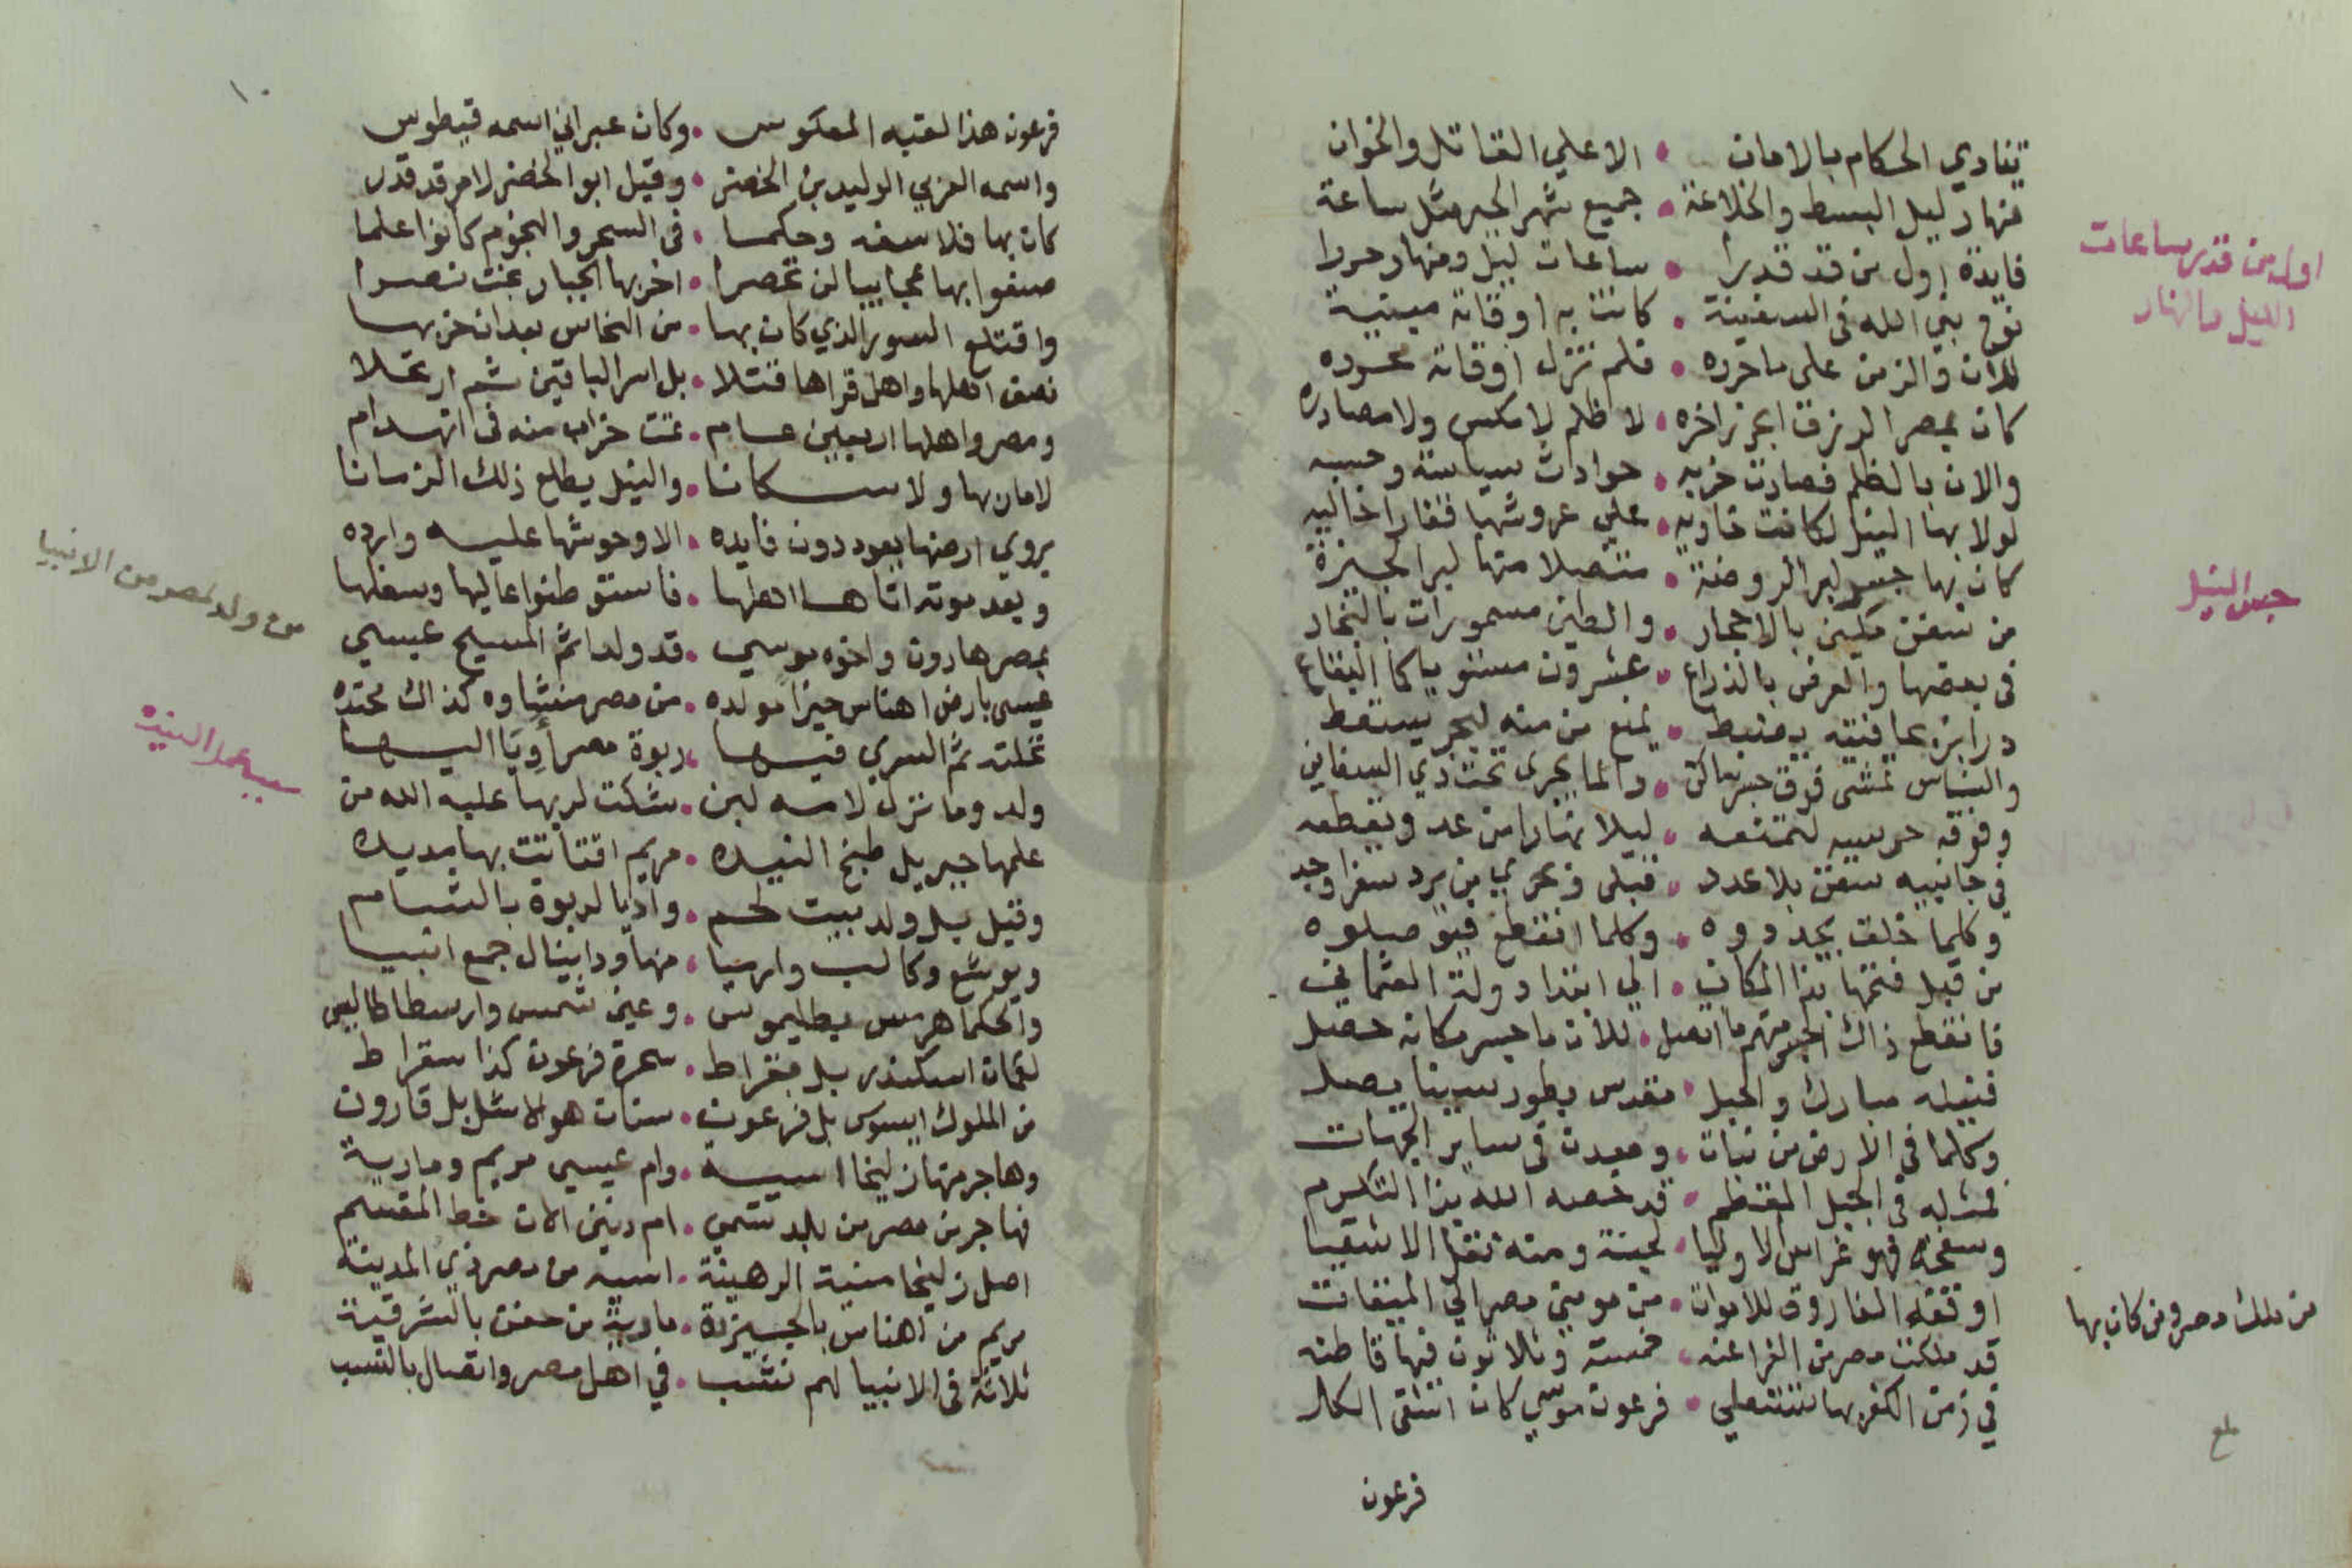 تنادي الحكام بالامان • الا علي القاتل والخوان
نهار ليل البسط والخلاعة • جميع شهر الجبر مثل ساعة
فايدة اول من قد قدرا • ساعات ليل ونهار حررا
نوح نبي الله في السفينة • كانت به اوقاته مبينة
للان والزمن علي ما حرده • فلم تزل اوقاته محدوده
كان بمصر الرزق ابحر زاخره • لا ظلم لا مكس ولا مصادره
والان بالظلم فصارت خربه • حوادث سياسة وحسبه
لولا بها النيل لكانت خاويه • علي عروشها قفارا خاليه
كان بها جسر لبر الروضة • متصلا منها لبر الجيزة
من سفن مكين بالاحجار • والطين مسمورات بالنجار
في بعضها والعرض بالذراع • عشرون مستويا كما البقاع
درابزه بحافتيه يضبط • يمنع من منه لبحر يسقط
والناس تمشي فوق جسر ساكن • والما يجري تحت ذي السفاين
وفوقه حرسيه لتمنعه • ليلا نهارا من عد ويقطعه
في جانبيه سفن بلا عدد • قبلي وبحري من يرد سفرا وجد
وكلما خلق يجددوه • وكلما انقطع فيوصلوه
من قبل فتحها بذا المكان • الي ابتدا دولة العثماني
فانقطع ذاك الجسر منهم ما اتصل • للان ما جسر مكانه حصل
فنيله مبارك والجبل • مقدس بطور سينا يصل
وكلما في الارض من نبات • ومعدن في ساير الجهات
فمثله في الجبل المقطم • قد خصه الله بذا التكرم
وسفحه فهو غراس الاوليا • لجنة ومنه نقل الاشقيا
اوقفه الفاروق للاموات • من مومني مصر الي الميقات
قد ملكت مصر من الفراعنه • خمسة وثلاثون فيها قاطنه
في زمن الكفر بها تستعلي • فرعون موسي كان اشقي الكل
فرعون
اول من قدر ساعات
الليل والنهار
جسر النيل
من ملك مصر ومن كان بها
بلغ
١٠
فرعون هذا لقبه المعكوس • وكان عبراني اسمه قيطوس
واسمه العربي الوليد بن الخضر • وقيل ابو الخضر لامر قد قدر
كان بها فلاسفه وحكما • في السحر والنجوم كانوا علما
صنفوا بها عجايبا لن تحصرا • اخربها الجبار بخت نصرا
واقتلع السور الذي كان بها • من النحاس بعد ان خربها
نصف اهلها واهل قراها قتلا • بل اسر الباقين ثم ارتحلا
ومصر واهلها اربعين عام • تمت خراب منه في انهدام
لامان بها ولا سكانا • والنيل يطلع ذلك الزمانا
يروي ارضها يعود دون فايده • الا وحوشها عليه وارده
وبعد موته اتاها اهلها • فاستوطنوا عاليها وسفلها
بمصر هارون واخوه موسي • قد ولدا ثم المسيح عيسي
عيسي بارض اهناس جيزا مولده • من مصر منشاوه كذاك محتده
نخلته ثم السري فيها • ربوة مصر أويا اليها
ولد وما نزل لامه لبن • شكت لربها عليه الله من
علمها جبريل طبخ النيده • مريم اقتاتت بها مديده
وقيل بل ولد ببيت لحم • واديا لربوة بالشام
ويوشع وكالب وارميا • منها ودانيال جمع انبيا
والحكما هرمس بطليموس • وعين شمس وارسطاطاليس
لقمان اسكندر بل بقراط • سحرة فرعون كذا سقراط
من الملوك ايسوس بل فرعون • سنان هولا مثل بل قارون
وهاجر منها زليخا اسيه • وام عيسي مريم ومارية
فهاجر من مصر من بلد تسمي • ام دنين الان خط المقسم
اصل زليخا منية الرهينة • اسيه من مصر ذي المدينة
مريم من اهناس بالجيزة • مارية من حفن بالشرقية
ثلاثة في الانبيا لهم نشب • في اهل مصر واتصال بالنسب
من ولد بمصر من الانبيا
سبب عمل النيده